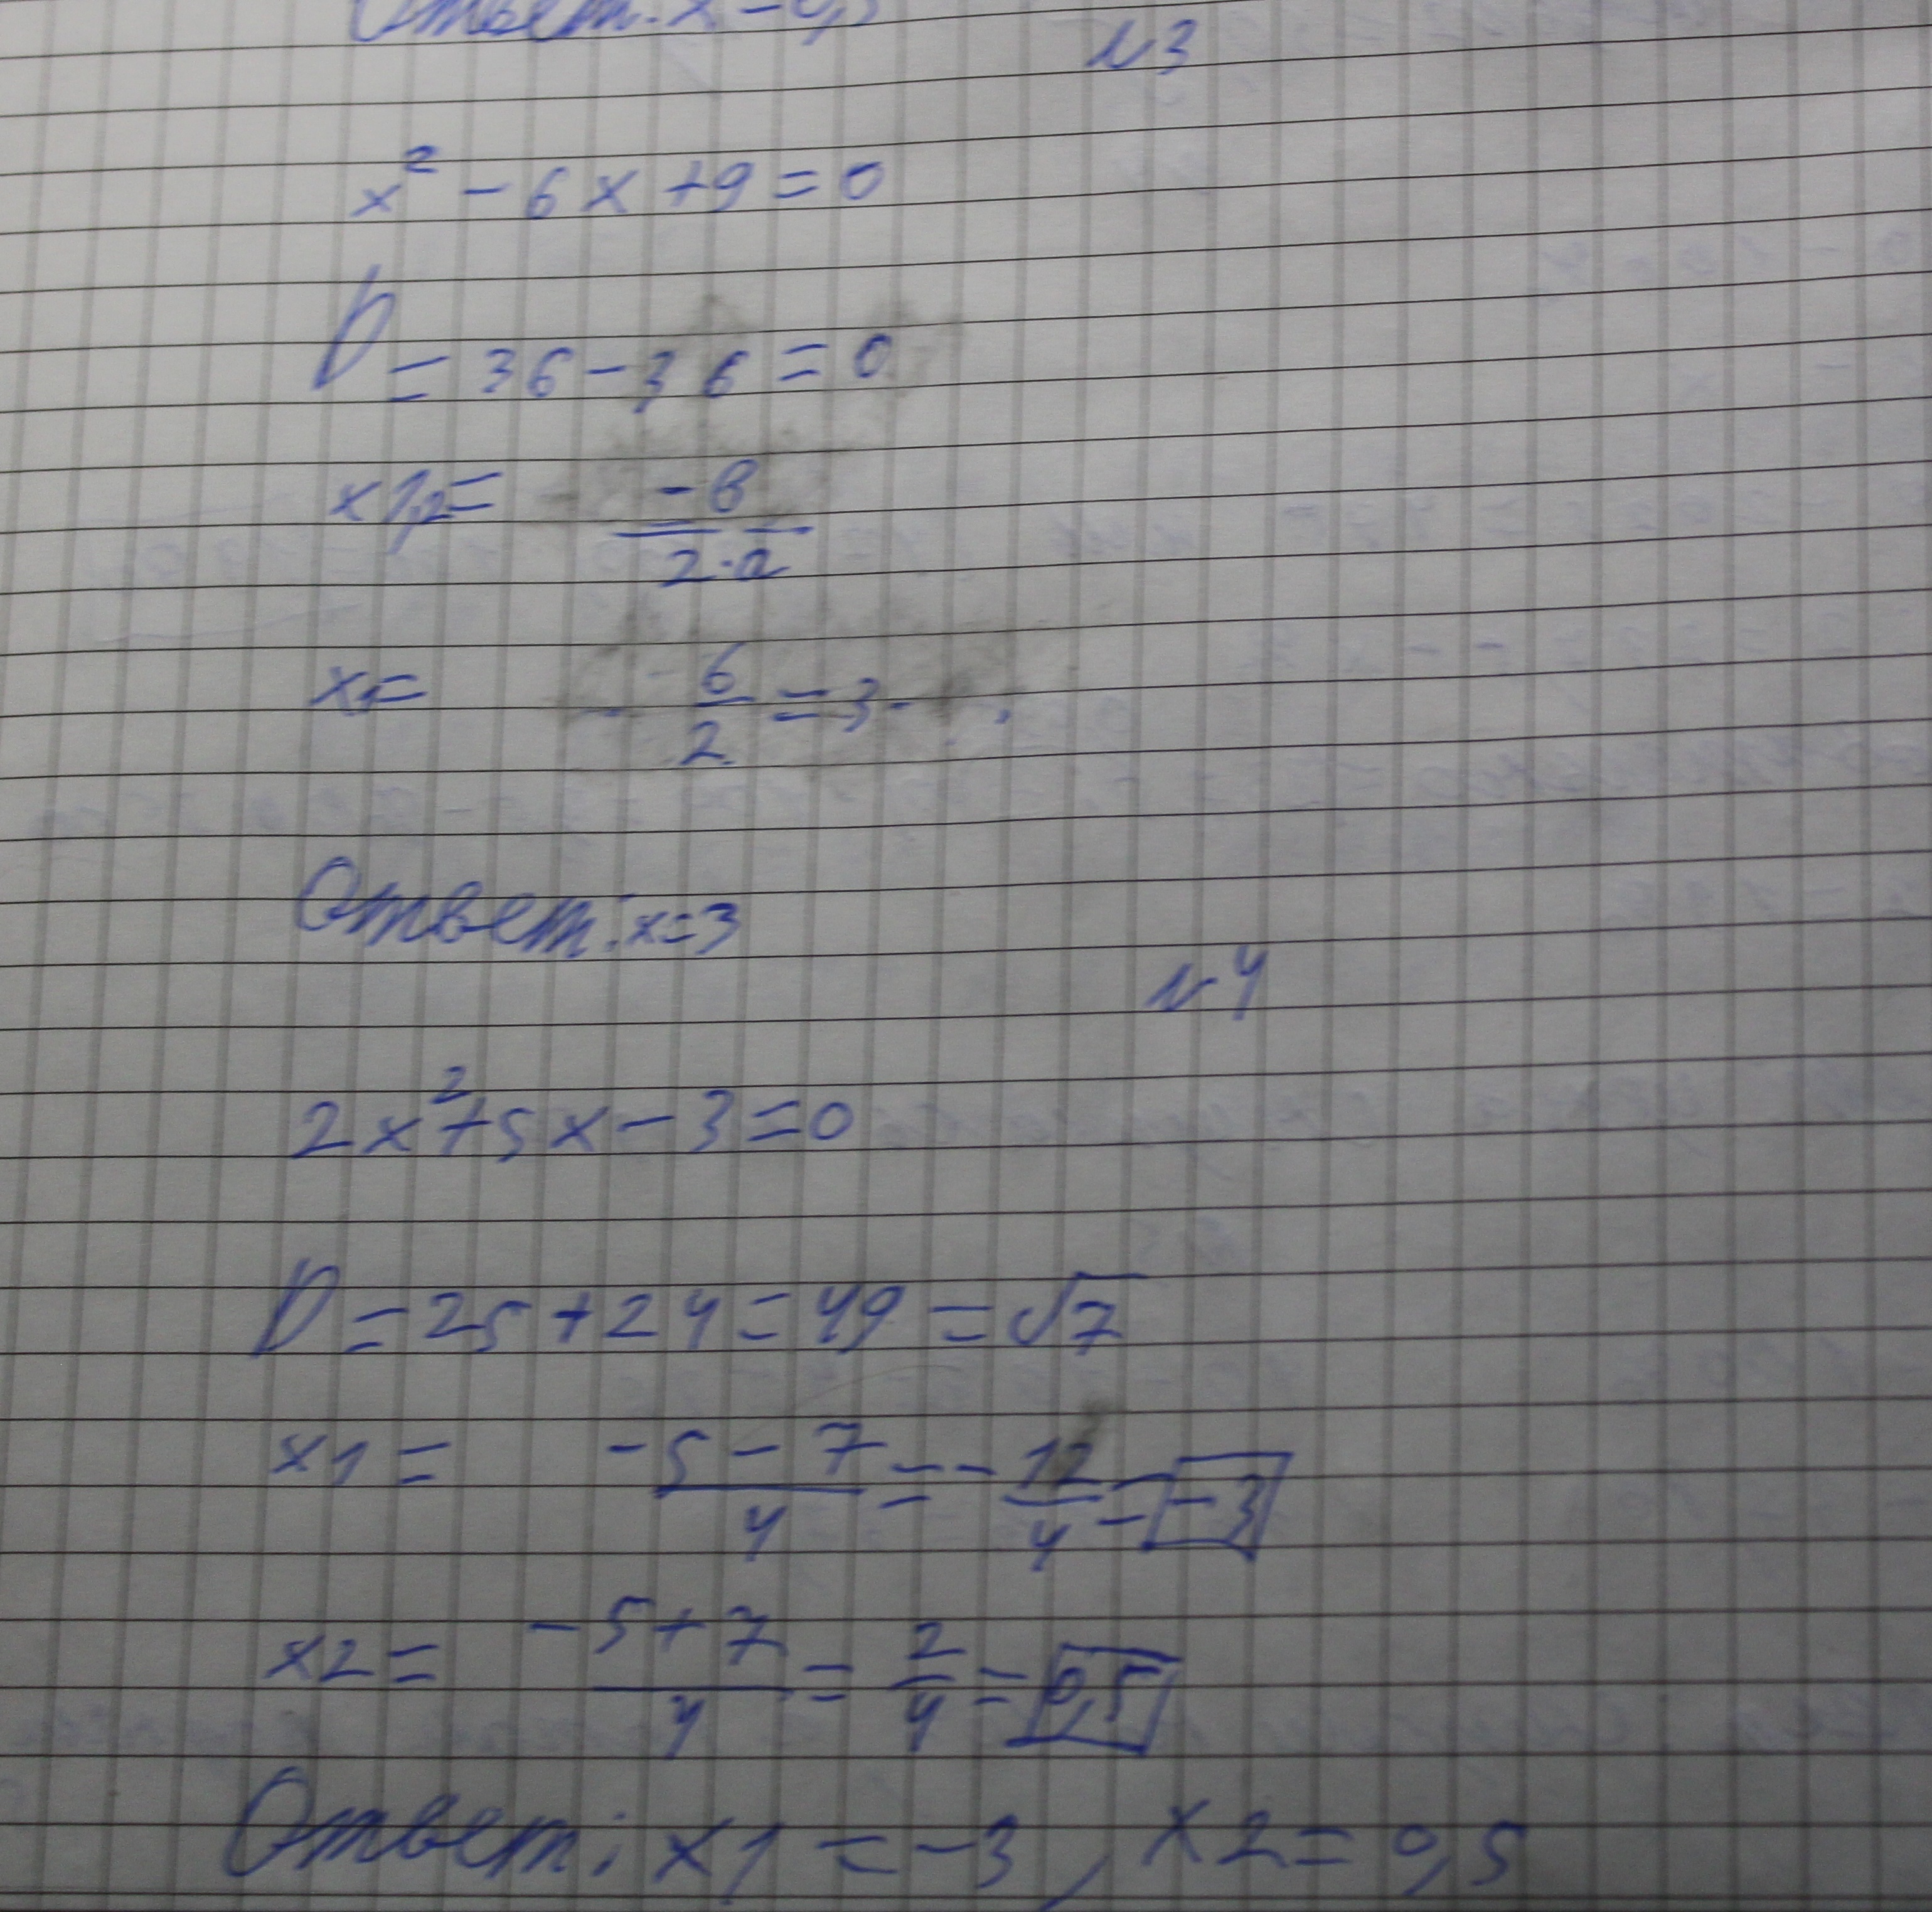 Ответ: x =
№3
x² - 6x + 9 = 0
D = 36 - 36 = 0
x1,2 = -в / 2·a
x = 6/2 = 3
Ответ: x=3
№4
2x² + 5x - 3 = 0
D = 25 + 24 = 49 = √7
x1 = (-5 - 7)/4 = -12/4 = -3
x2 = (-5 + 7)/4 = 2/4 = 0,5
Ответ: x1 = -3, x2 = 0,5